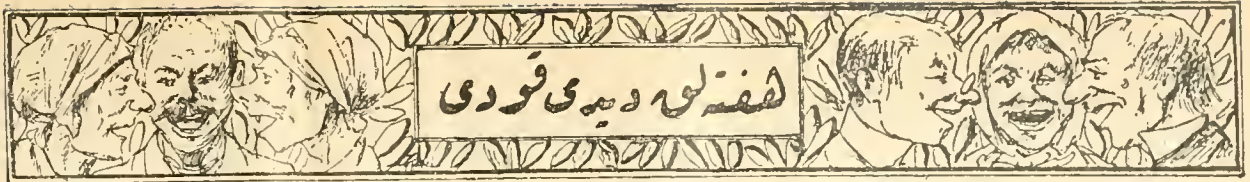 هفته‌لق دیدی قودی